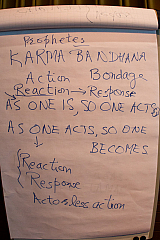 Prophetes
KARMA BANDHANA
Action Bondage
Reaction → Response
AS ONE IS, SO ONE ACTS
AS ONE ACTS, SO ONE
↓ BECOMES
Reaction
Response
Actorless action